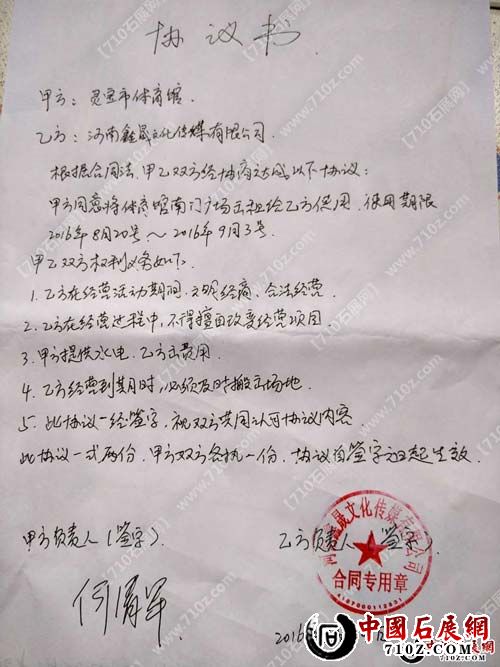 协议书
甲方：灵宝市体育馆.
乙方：河南鑫晟文化传媒有限公司
根据合同法，甲乙双方经协商达成以下协议：
甲方同意将体育馆南门广场出租给乙方使用.使用期限
2016年8月20号～2016年9月3号.
甲乙双方权利义务如下.
1.乙方在经营活动期间，文明经商、合法经营
2.乙方在经营过程中，不得擅自改变经营项目
3.甲方提供水电，乙方出费用
4.乙方经营到期时，必须及时搬出场地.
5.此协议一经签字，视双方共同认可协议内容
此协议一式两份，甲乙双方各执一份，协议自签字之日起生效.
甲方负责人（签字）.
乙方负责人（签字）.
河南鑫晟文化传媒有限公司
合同专用章
4107000112831
2016年
中國石展網
710Z.COM
【710石展网】
www.710z.com